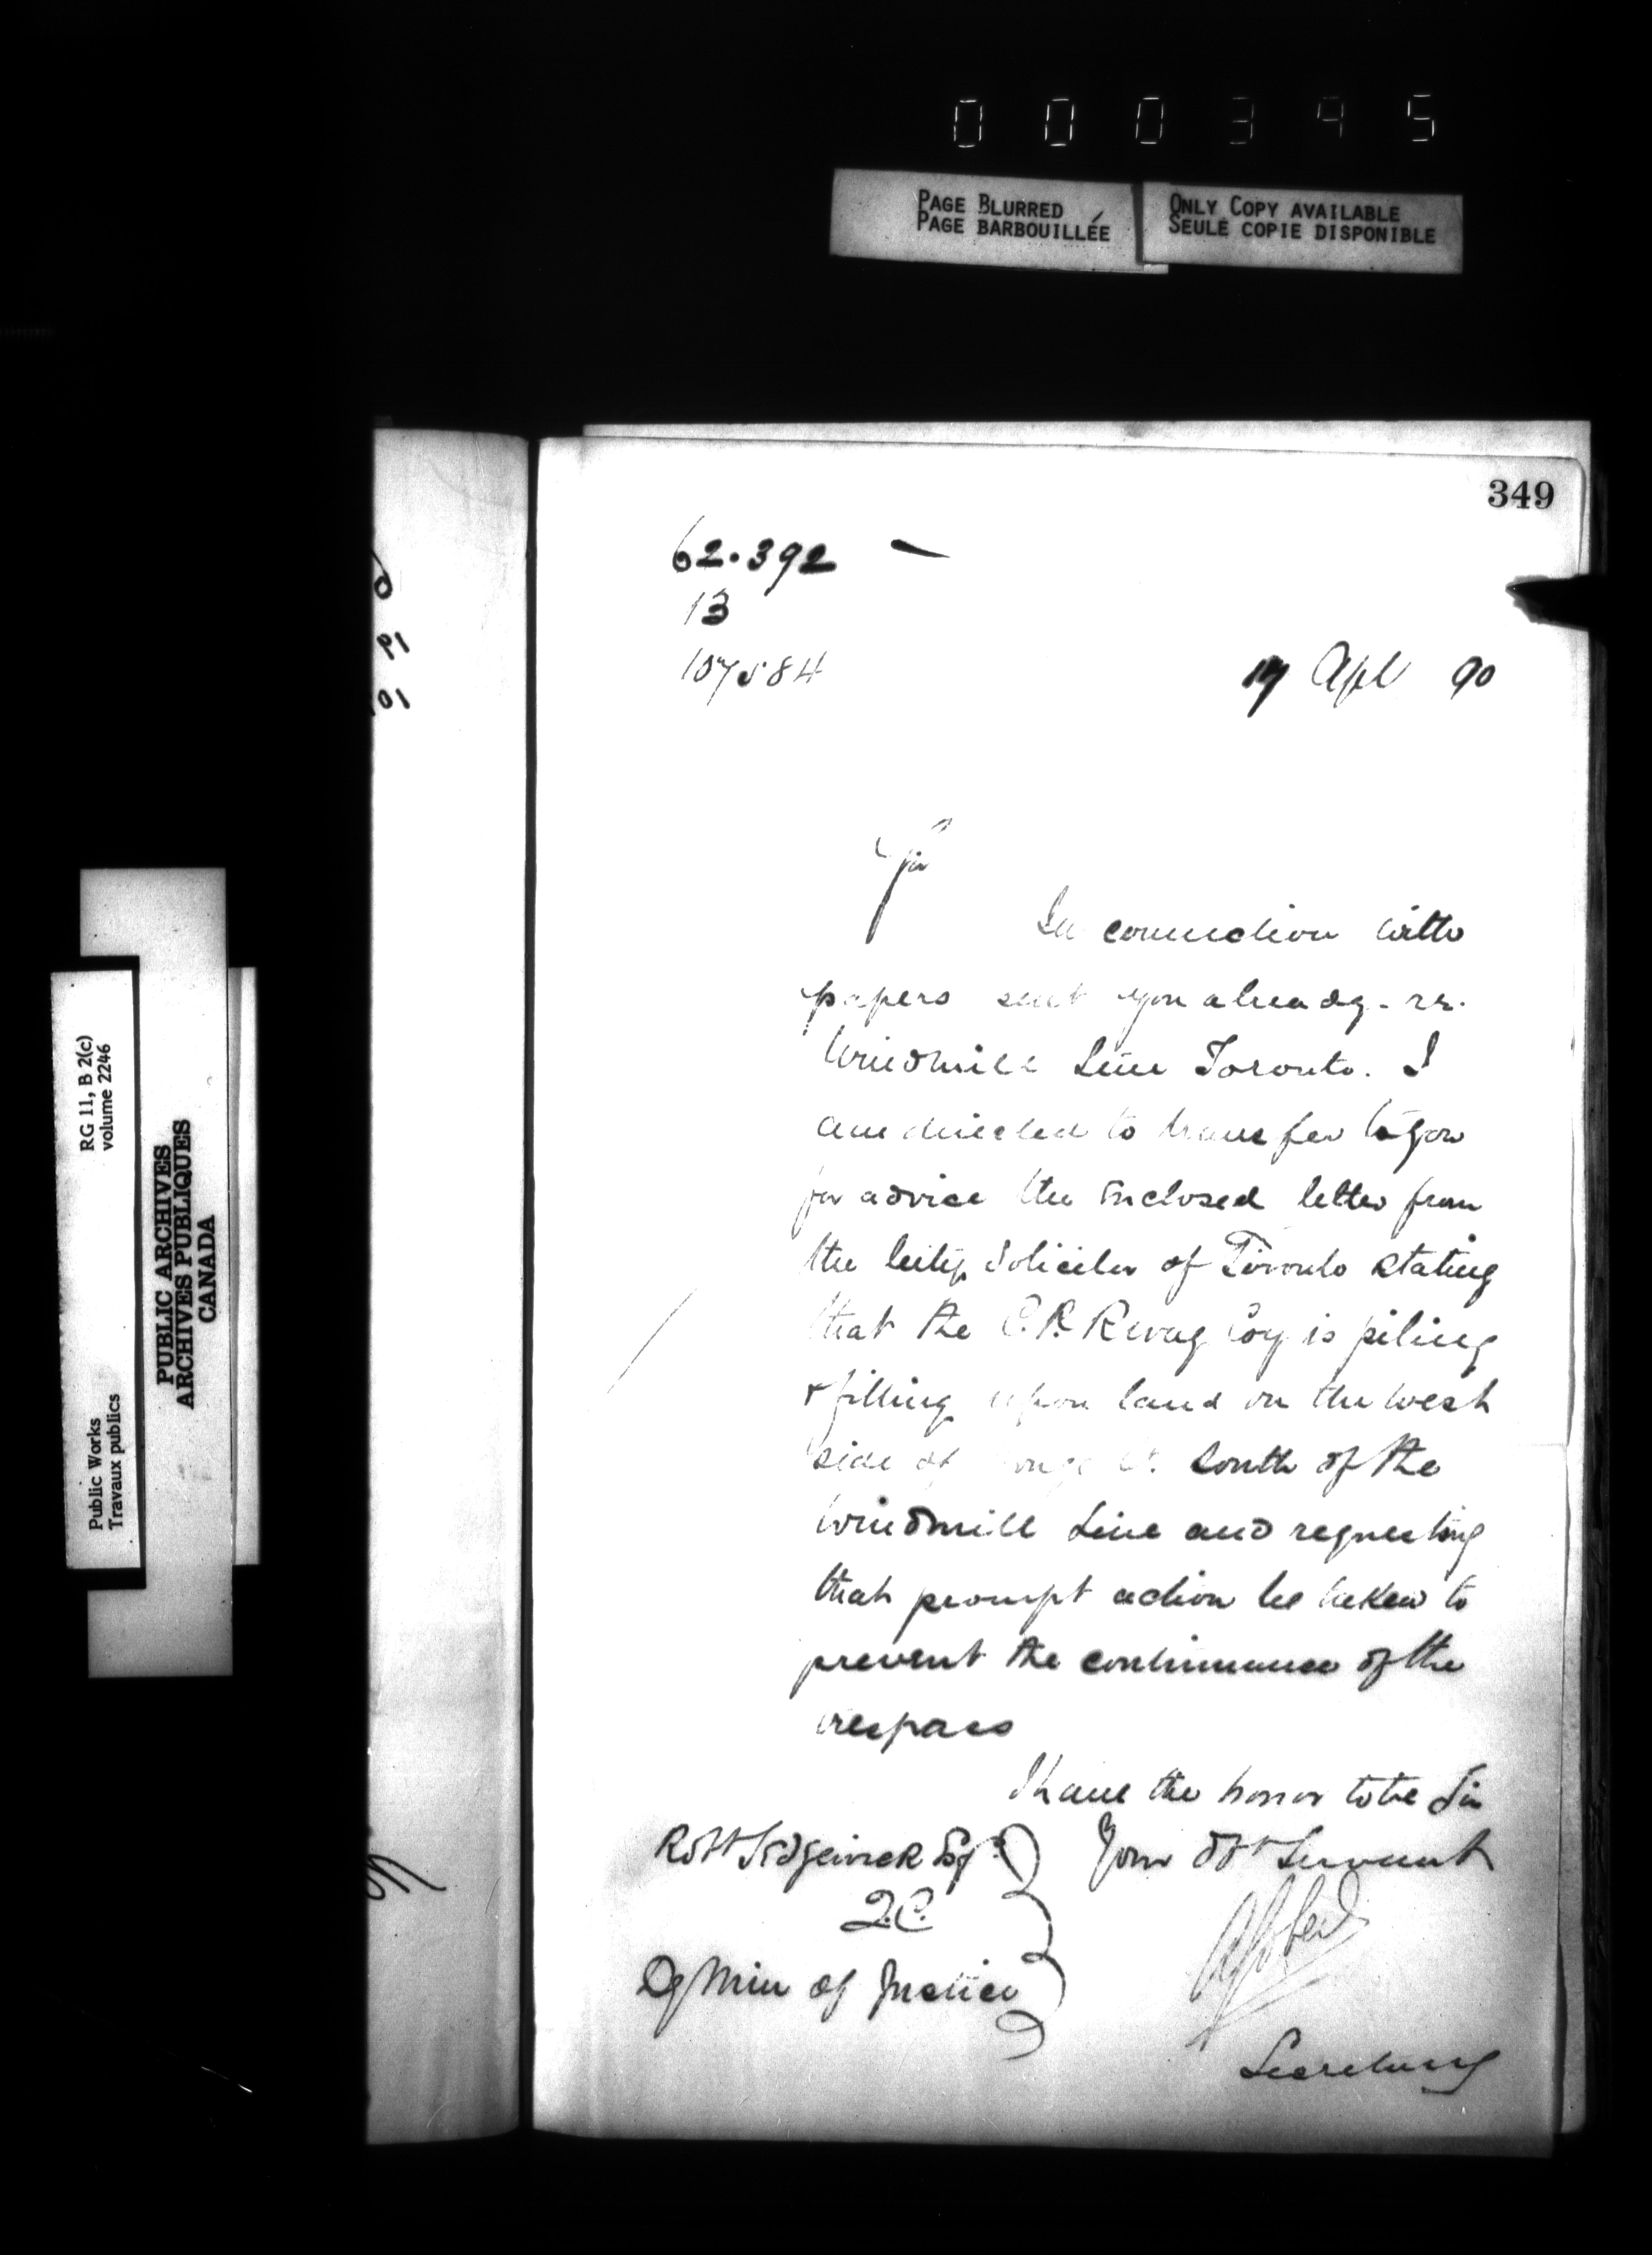 000345
PAGE BLURRED
PAGE BARBOUILLÉE
ONLY COPY AVAILABLE
SEULE COPIE DISPONIBLE
RG 11, B 2(c)
volume 2246
Public Works
Travaux publics
PUBLIC ARCHIVES
ARCHIVES PUBLIQUES
CANADA
349
62.392
13
107584
Apl 90
Sir
In connection with
papers sent you already re.
Windmill Line Toronto. I
am directed to transfer to you
for advice the enclosed letter from
the City Solicitor of Toronto stating
that the C.P. Rway Coy is piling
& filling upon land on the west
side of Yonge St. South of the
Windmill Line and requesting
that prompt action be taken to
prevent the continuance of the
trespass
I have the honor to be Sir
Your Obt Servant
Robt Sedgewick Esq.
Q.C.
Dy Min of Justice
Secretary